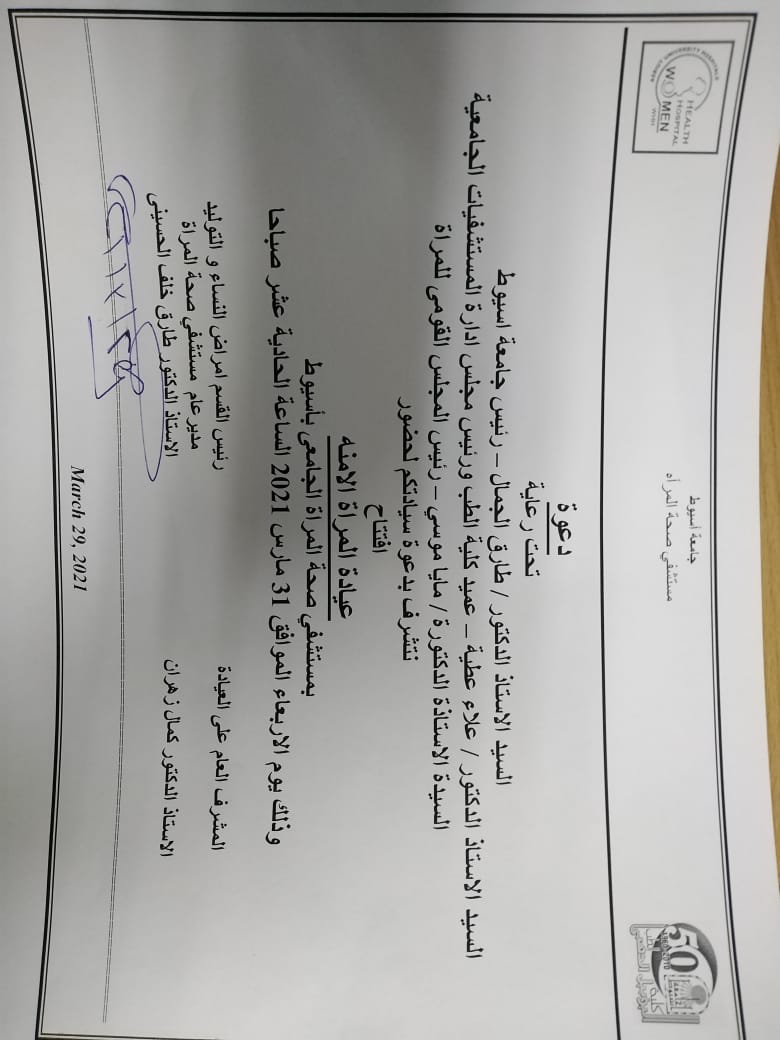 جامعة أسيوط
مستشفي صحة المرأه
ASSIUT UNIVERSITY HOSPITALS
HEALTH
HOSPITAL
WOMEN
WHH
50
1960-2010
دعوة
تحت رعاية
السيد الاستاذ الدكتور / طارق الجمال – رئيس جامعة اسيوط
السيد الاستاذ الدكتور / علاء عطية – عميد كلية الطب ورئيس مجلس ادارة المستشفيات الجامعية
السيدة الاستاذة الدكتورة / مايا موسي – رئيس المجلس القومى للمراة
نتشرف بدعوة سيادتكم لحضور
افتتاح
عيادة المراة الامنه
بمستشفي صحة المراة الجامعى بأسيوط
وذلك يوم الاربعاء الموافق 31 مارس 2021 الساعة الحادية عشر صباحا
المشرف العام على العيادة
رئيس القسم امراض النساء و التوليد
مدير عام مستشفي صحة المراة
الاستاذ الدكتور كمال زهران
الاستاذ الدكتور طارق خلف الحسينى
March 29, 2021